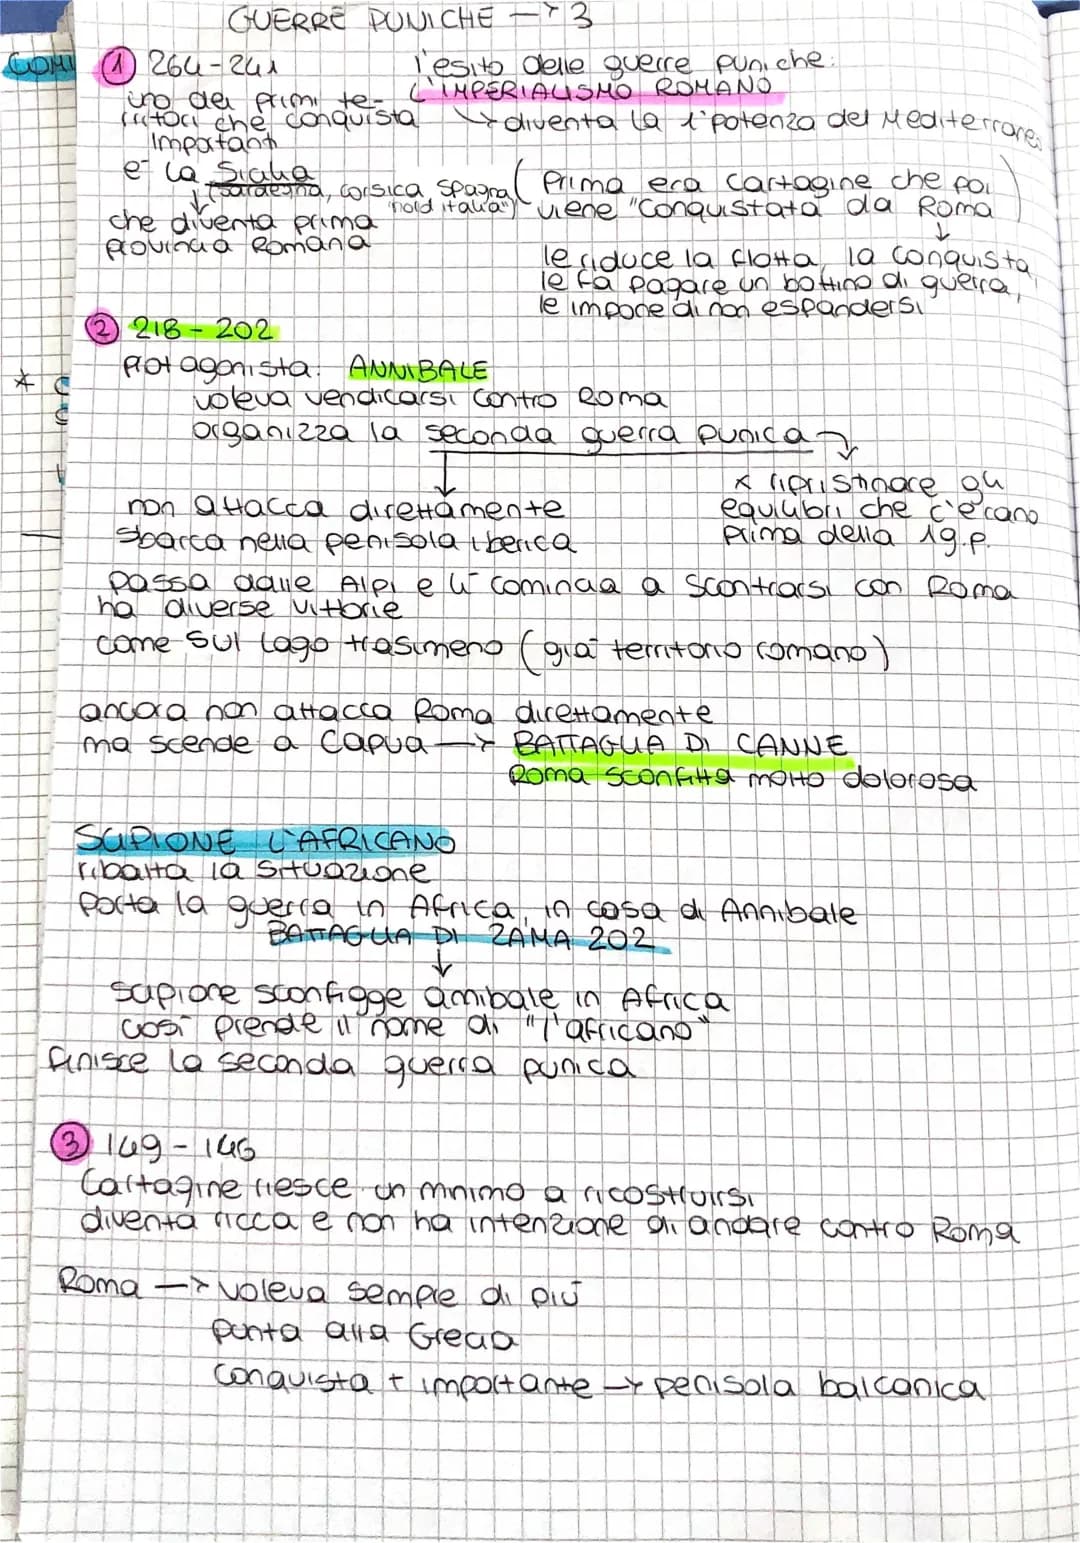 GUERRE PUNICHE → 3
COMU
1 264-241
uno dei primi te-
rritori che conquista
importanti
e' la Sicilia
(Sardegna, Corsica, Spagna
"nord italia")
che diventa prima
provincia Romana
l'esito delle guerre puniche:
L'IMPERIALISMO ROMANO
→ diventa la 1° potenza del Mediterraneo
( Prima era Cartagine che poi
viene "conquistata" da Roma )
↓
le riduce la flotta, la conquista,
le fa pagare un bottino di guerra,
le impone di non espandersi
2 218-202
protagonista: ANNIBALE
voleva vendicarsi contro Roma
organizza la seconda guerra punica
x ripristinare gli
equilibri che c'erano
prima della 1g.p.
non attacca direttamente
sbarca nella penisola iberica
passa dalle Alpi e lì comincia a scontrarsi con Roma
ha diverse vittorie
come sul lago trasimeno (già territorio romano)
ancora non attacca Roma direttamente
ma scende a Capua → BATTAGLIA DI CANNE
Roma sconfitta molto dolorosa
SCIPIONE L'AFRICANO
ribalta la situazione
porta la guerra in Africa, in casa di Annibale
BATTAGLIA DI ZAMA 202
↓
scipione sconfigge annibale in Africa
così prende il nome di "l'africano"
finisce la seconda guerra punica
3 149-146
Cartagine riesce un minimo a ricostruirsi
diventa ricca e non ha intenzione di andare contro Roma
Roma → voleva sempre di più
punta alla Grecia
conquista + importante → penisola balcanica